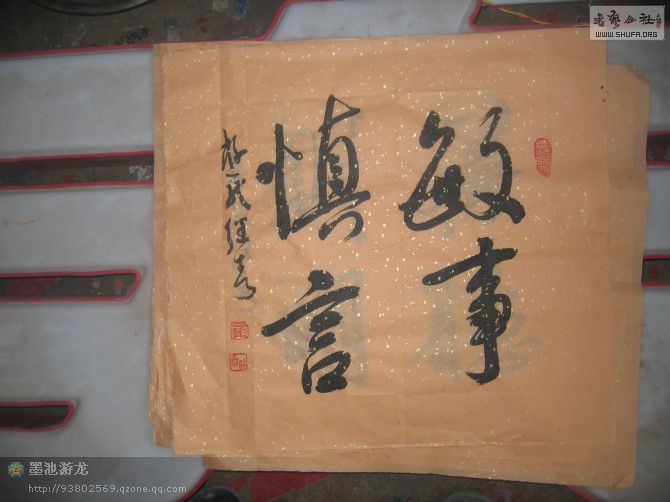 敏事
慎言
书艺公社
WWW.SHUFA.ORG
墨池游龙
http://93802569.qzone.qq.com